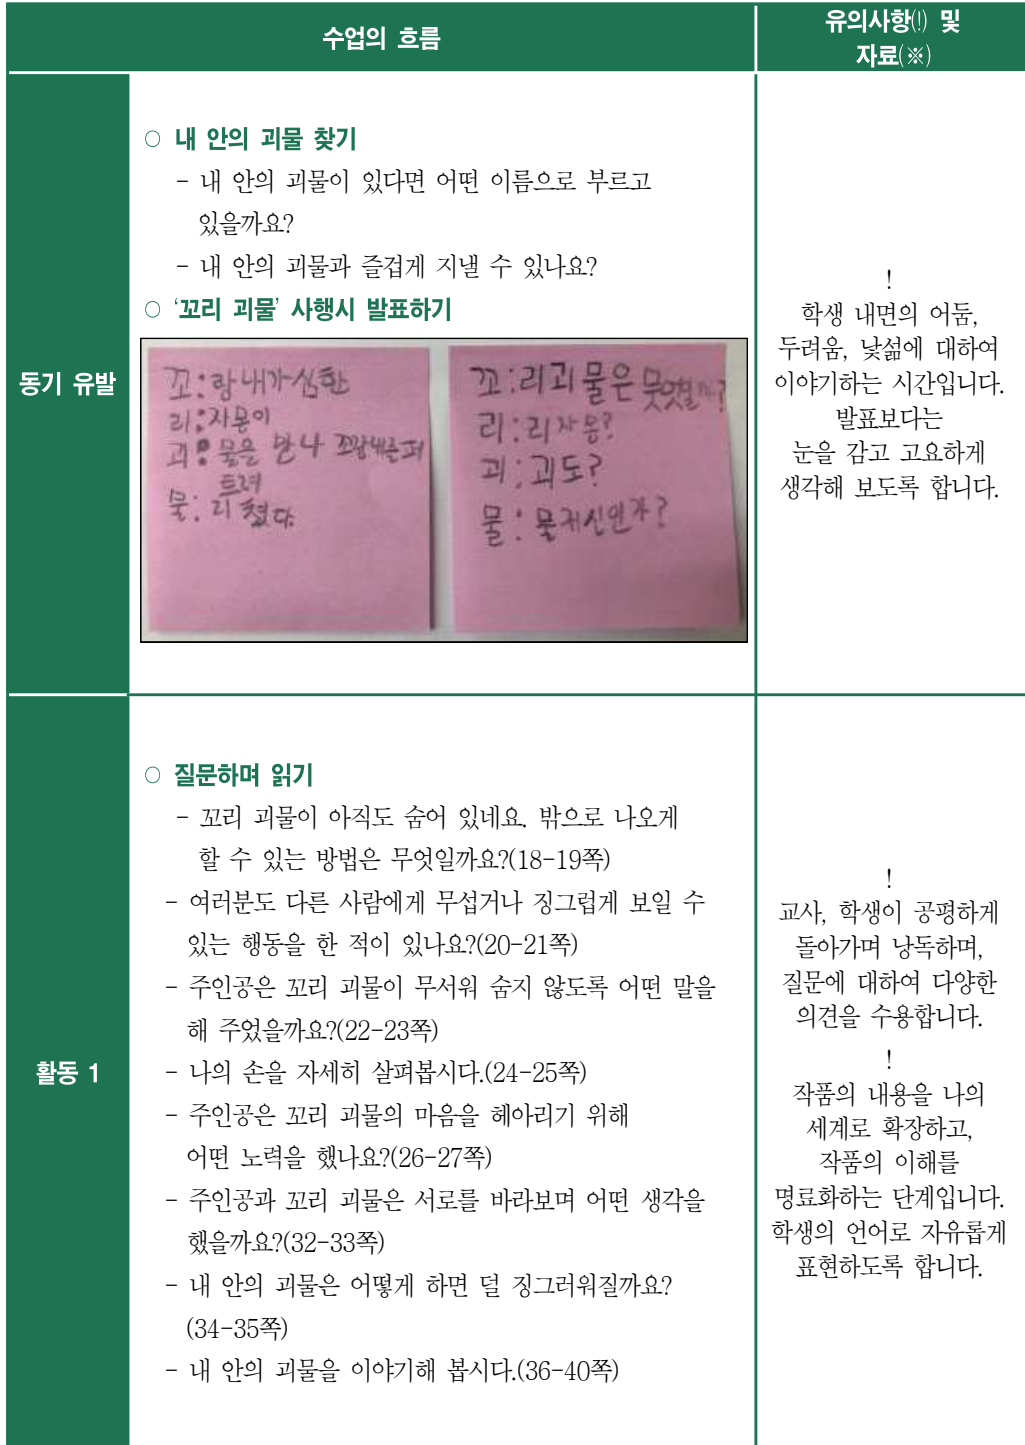 수업의 흐름
유의사항(!) 및
자료(※)
동기 유발
○ 내 안의 괴물 찾기
- 내 안의 괴물이 있다면 어떤 이름으로 부르고
있을까요?
- 내 안의 괴물과 즐겁게 지낼 수 있나요?
○ ‘꼬리 괴물’ 사행시 발표하기
꼬:랑내가 심한
리:자몽이
괴:물을 만나 꼬랑내를 퍼
트려
물:리쳤다
꼬:리괴물은 무엇일까?
리:리자몽?
괴:괴도?
물:물귀신인가?
!
학생 내면의 어둠,
두려움, 낯섦에 대하여
이야기하는 시간입니다.
발표보다는
눈을 감고 고요하게
생각해 보도록 합니다.
활동 1
○ 질문하며 읽기
- 꼬리 괴물이 아직도 숨어 있네요. 밖으로 나오게
할 수 있는 방법은 무엇일까요?(18-19쪽)
- 여러분도 다른 사람에게 무섭거나 징그럽게 보일 수
있는 행동을 한 적이 있나요?(20-21쪽)
- 주인공은 꼬리 괴물이 무서워 숨지 않도록 어떤 말을
해 주었을까요?(22-23쪽)
- 나의 손을 자세히 살펴봅시다.(24-25쪽)
- 주인공은 꼬리 괴물의 마음을 헤아리기 위해
어떤 노력을 했나요?(26-27쪽)
- 주인공과 꼬리 괴물은 서로를 바라보며 어떤 생각을
했을까요?(32-33쪽)
- 내 안의 괴물은 어떻게 하면 덜 징그러워질까요?
(34-35쪽)
- 내 안의 괴물을 이야기해 봅시다.(36-40쪽)
!
교사, 학생이 공평하게
돌아가며 낭독하며,
질문에 대하여 다양한
의견을 수용합니다.
!
작품의 내용을 나의
세계로 확장하고,
작품의 이해를
명료화하는 단계입니다.
학생의 언어로 자유롭게
표현하도록 합니다.